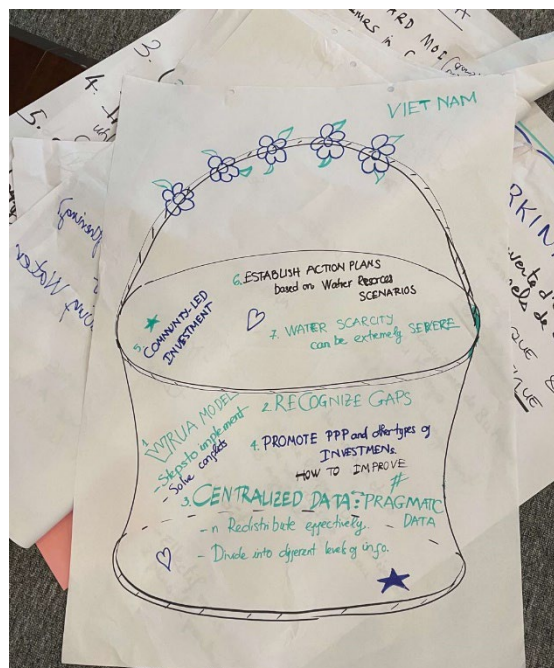 VIET NAM
6. ESTABLISH ACTION PLANS
based on Water Resorces
SCENARIOS
5. COMMUNITY-LED
INVESTMENT
7. WATER SCARCITY
can be extremely SEVERE
1. WRUA MODEL
- Steps to implement
- Solve conflicts
2. RECOGNIZE GAPS
4. PROMOTE PPP and other types of
INVESTMENs.
HOW TO IMPROVE
3. CENTRALIZED DATA: PRAGMATIC
# DATA
- Redistribute effectively.
- Divide into different level of info.
3.
4.
5.
ARD MOD
in
Water
RKIN
QUE